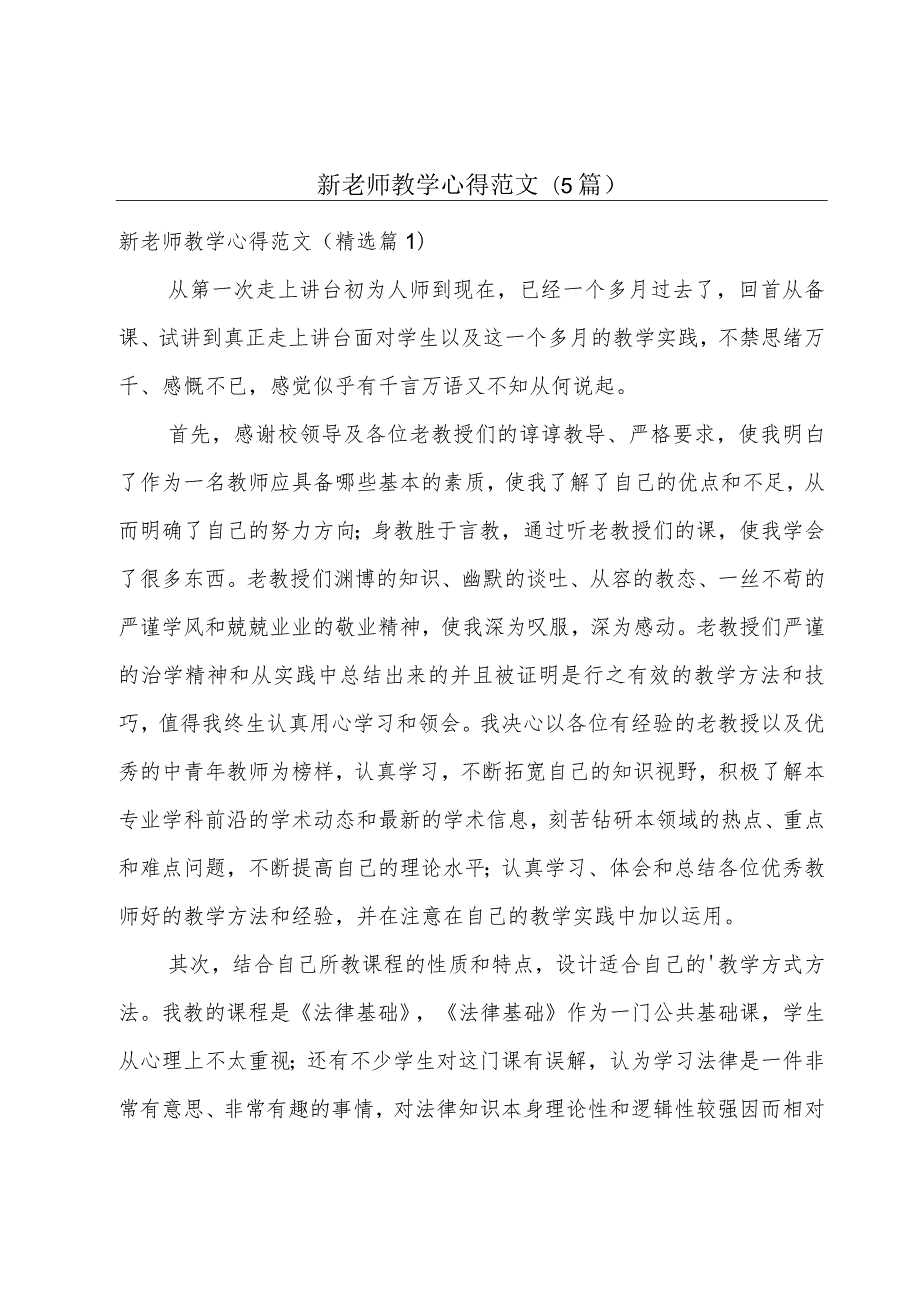 新老师教学心得范文 (5 篇）
新老师教学心得范文（精选篇 1)
从第一次走上讲台初为人师到现在，已经一个多月过去了，回首从备
课、试讲到真正走上讲台面对学生以及这一个多月的教学实践，不禁思绪万
千、感慨不已，感觉似乎有千言万语又不知从何说起。
首先，感谢校领导及各位老教授们的谆谆教导、严格要求，使我明白
了作为一名教师应具备哪些基本的素质，使我了解了自己的优点和不足，从
而明确了自己的努力方向；身教胜于言教，通过听老教授们的课，使我学会
了很多东西。老教授们渊博的知识、幽默的谈吐、从容的教态、一丝不苟的
严谨学风和兢兢业业的敬业精神，使我深为叹服，深为感动。老教授们严谨
的治学精神和从实践中总结出来的并且被证明是行之有效的教学方法和技
巧，值得我终生认真用心学习和领会。我决心以各位有经验的老教授以及优
秀的中青年教师为榜样，认真学习，不断拓宽自己的知识视野，积极了解本
专业学科前沿的学术动态和最新的学术信息，刻苦钻研本领域的热点、重点
和难点问题，不断提高自己的理论水平；认真学习、体会和总结各位优秀教
师好的教学方法和经验，并在注意在自己的教学实践中加以运用。
其次，结合自己所教课程的性质和特点，设计适合自己的'教学方式方
法。我教的课程是《法律基础》，《法律基础》作为一门公共基础课，学生
从心理上不太重视；还有不少学生对这门课有误解，认为学习法律是一件非
常有意思、非常有趣的事情，对法律知识本身理论性和逻辑性较强因而相对